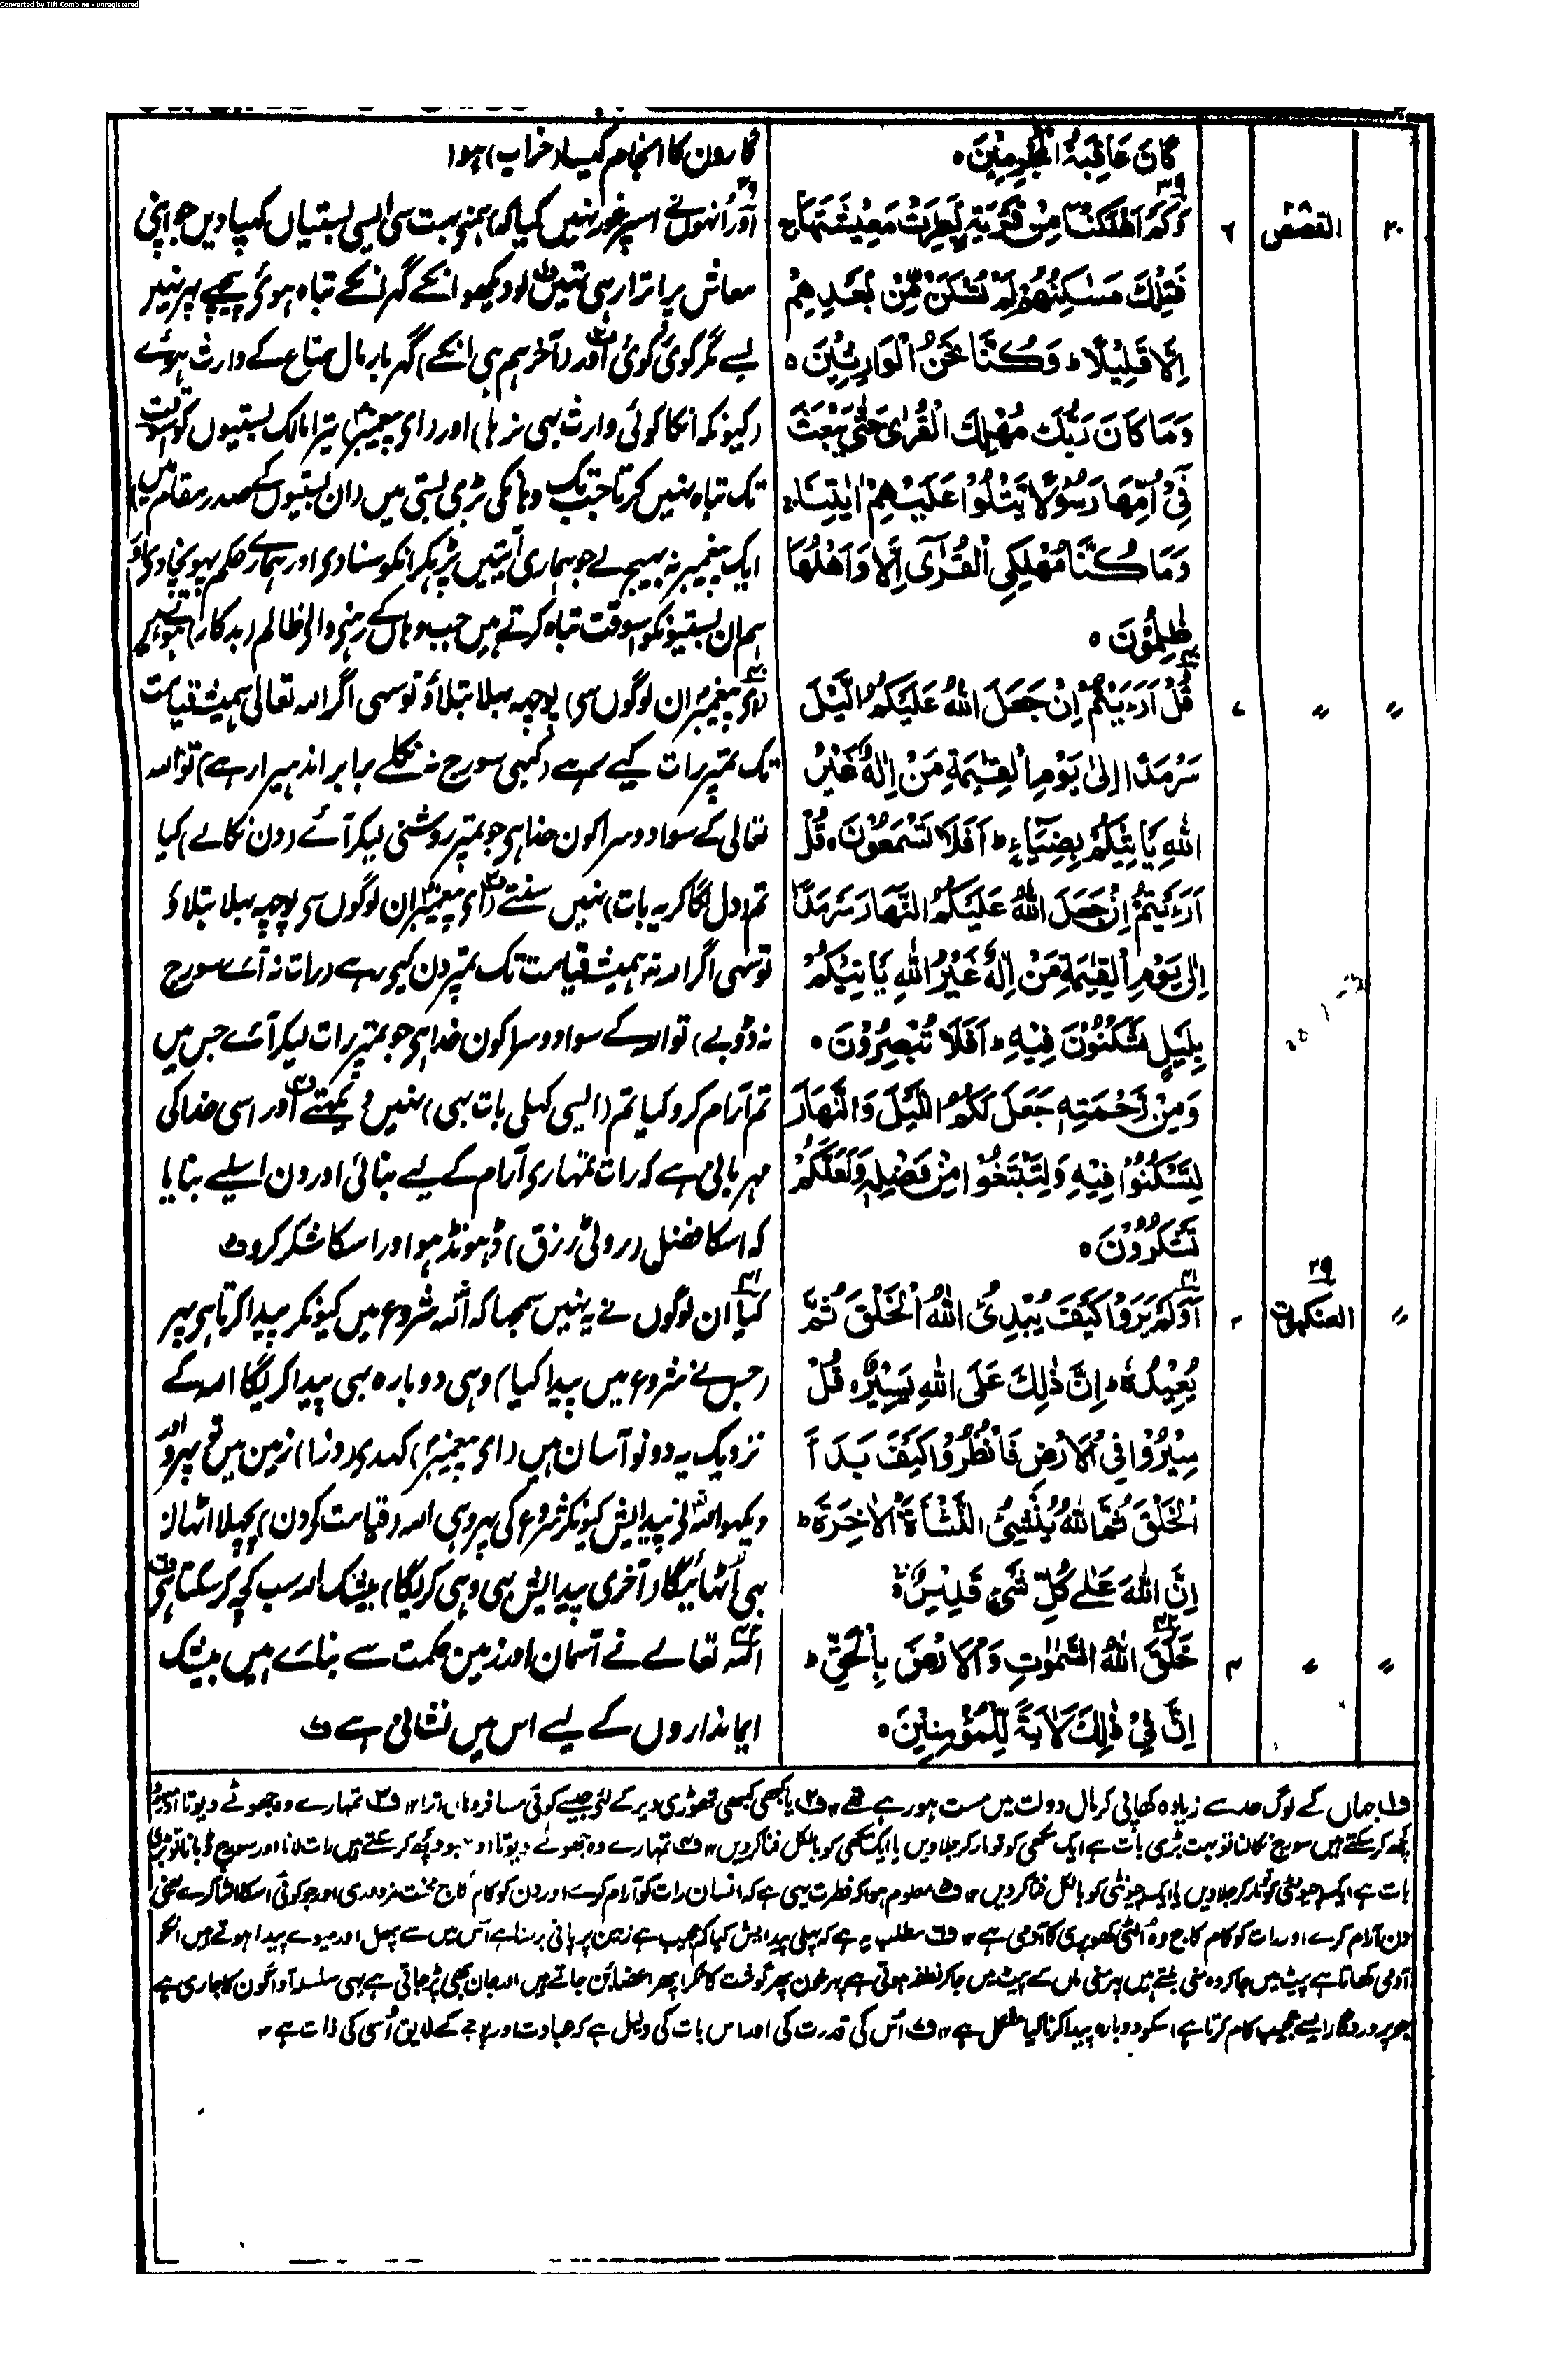 Converted by Tiff Combine - unregistered
كَانَ عَاقِبَةُ الْمُجْرِمِيْنَ ۝
گارون کا انجام کیسا (خراب) ہوا
۲۰
القصص
۶
وَكَمْ اَهْلَكْنَا مِنْ قَرْيَةٍ بَطِرَتْ مَعِيْشَتَهَا ج
فَتِلْكَ مَسٰكِنُهُمْ لَمْ تُسْكَنْ مِّنْ بَعْدِهِمْ
اِلَّا قَلِيْلًا ط وَكُنَّا نَحْنُ الْوَارِثِيْنَ ۝
وَمَا كَانَ رَبُّكَ مُهْلِكَ الْقُرٰى حَتّٰى يَبْعَثَ
فِيْٓ اُمِّهَا رَسُوْلًا يَّتْلُوْا عَلَيْهِمْ اٰيٰتِنَا ج
وَمَا كُنَّا مُهْلِكِي الْقُرٰٓى اِلَّا وَاَهْلُهَا
ظٰلِمُوْنَ ۝
اور اُنہوں نے اسپر غور نہیں کیا کہ) ہمنے بہت سی ایسی بستیاں کہپا دیں جو اپنی
معاش پر اترا رہی تہیں ف۱ لو دیکھو انکے گہر انکے تباہ ہوئی پیچھے پہر نہیں
بسے مگر کوئی کوئی ف۲ اور (آخر ہم ہی انکے) گہر بار مال متاع کے وارث ہوئے
(کیونکہ انکا کوئی وارث بہی نہ رہا) اور (ای پیغمبر) تیرا مالک بستیوں کو اسوقت
تک تباہ نہیں کرتا جب تک وہانکی بڑی بستی میں (ان بستیوں کے صدر مقام میں)
ایک پیغمبر نہ بہیجے لے جو ہماری آیتیں پڑہکر انکو سنا دی اور ہمارے حکم پہونچا دی اور
ہم ان بستیونکو اسوقت تباہ کرتے ہیں جب وہاں کے رہنی والی ظالم (بدکار) ہوتے ہیں
〃
〃
۷
قُلْ اَرَءَيْتُمْ اِنْ جَعَلَ اللّٰهُ عَلَيْكُمُ الَّيْلَ
سَرْمَدًا اِلٰى يَوْمِ الْقِيٰمَةِ مَنْ اِلٰهٌ غَيْرُ
اللّٰهِ يَاْتِيْكُمْ بِضِيَآءٍ ط اَفَلَا تَسْمَعُوْنَ ۝ قُلْ
اَرَءَيْتُمْ اِنْ جَعَلَ اللّٰهُ عَلَيْكُمُ النَّهَارَ سَرْمَدًا
اِلٰى يَوْمِ الْقِيٰمَةِ مَنْ اِلٰهٌ غَيْرُ اللّٰهِ يَاْتِيْكُمْ
بِلَيْلٍ تَسْكُنُوْنَ فِيْهِ ط اَفَلَا تُبْصِرُوْنَ ۝
وَمِنْ رَّحْمَتِهٖ جَعَلَ لَكُمُ اللَّيْلَ وَالنَّهَارَ
لِتَسْكُنُوْا فِيْهِ وَلِتَبْتَغُوْا مِنْ فَضْلِهٖ وَلَعَلَّكُمْ
تَشْكُرُوْنَ ۝
(ای پیغمبر ان لوگوں سی) پوچہہ بہلا بتلاؤ تو سہی اگر اللہ تعالی ہمیشہ قیامت
تک تمپر رات کیے رہے (کبہی سورج نہ نکلے برابر اندہیرا رہے) تو اللہ
تعالی کے سوا دوسرا کون خدا ہی جو تمپر روشنی لیکر آئے (دن نکالے) کیا
تم (دل لگا کر یہ بات) نہیں سنتے ف۳ (ای پیغمبر ان لوگوں سی پوچہہ بہلا بتلاؤ
تو سہی اگر اللہ تہ ہمیشہ قیامت تک تمپر دن کیے رہے (رات نہ آئے سورج
نہ ڈوبے) تو اللہ کے سوا دوسرا کون خدا ہی جو تمپر رات لیکر آئے جس میں
تم آرام کرو کیا تم (ایسی کہلی بات بہی) نہیں دیکہتے ف۴ اور اسی خدا کی
مہربانی ہے کہ رات تمہاری آرام کے لیے بنائی اور دن اسلیے بنایا
کہ اسکا فضل (روٹی رزق) ڈہونڈہو اور اسکا شکر کرو ف۵
〃
۲۹ العنکبوت
۲
اَوَلَمْ يَرَوْا كَيْفَ يُبْدِئُ اللّٰهُ الْخَلْقَ ثُمَّ
يُعِيْدُهٗ ط اِنَّ ذٰلِكَ عَلَى اللّٰهِ يَسِيْرٌ ۝ قُلْ
سِيْرُوْا فِي الْاَرْضِ فَانْظُرُوْا كَيْفَ بَدَاَ
الْخَلْقَ ثُمَّ اللّٰهُ يُنْشِئُ النَّشْاَةَ الْاٰخِرَةَ ط
اِنَّ اللّٰهَ عَلٰى كُلِّ شَيْءٍ قَدِيْرٌ ۝
کیا ان لوگوں نے یہ نہیں سمجہا کہ اللہ شروع میں کیونکر پیدا کرتا ہی پہر
(جس نے شروع میں پیدا کیا) وہی دوبارہ بہی پیدا کریگا اللہ کے
نزدیک یہ دونو آسان ہیں (ای پیغمبر) کہدی (ذرا) زمین میں تو پہرو اور
دیکہو اللہ نی پیدایش کیونکر شروع کی پہر وہی اللہ (قیامت کو دن) پچہلا اٹہان
بہی اُٹہائیگا (آخری پیدایش بہی وہی کریگا) بیشک اللہ سب کچہ کر سکتا ہی ف۶
〃
〃
۴
خَلَقَ اللّٰهُ السَّمٰوٰتِ وَالْاَرْضَ بِالْحَقِّ ط
اِنَّ فِيْ ذٰلِكَ لَاٰيَةً لِّلْمُؤْمِنِيْنَ ۝
اللہ تعالے نے آسمان اور زمین حکمت سے بنائے ہیں بیشک
ایمانداروں کے لیے اس میں نشانی ہے ف۷
ف۱ جہاں کے لوگ حد سے زیادہ کھاپی کر مال دولت میں مست ہو رہے تھے ۱۲ ف۲ یا کبھی کبھی تھوڑی دیر کے لئے جیسے کوئی مسافر وہاں اترا ۱۲ ف۳ تمہارے وہ جھوٹے دیوتا
کچھ کر سکتے ہیں سورج نکالنا تو بہت بڑی بات ہے ایک مکھی کو تو مار کر جلا دیں یا ایک مکھی کو بالکل فنا کر دیں ۱۲ ف۴ تمہارے وہ جھوٹے دیوتا کچھ کر سکتے ہیں رات لانا اور سورج ڈبانا تو بڑی
بات ہے ایک چیونٹی کو مار کر جلا دیں یا ایک چیونٹی کو بالکل فنا کر دیں ۱۲ ف۵ معلوم ہوا کہ فطرت یہی ہے کہ انسان رات کو آرام کرے اور دن کو کام کاج محنت مزدوری اور جو کوئی اسکا الٹا کرے یعنی
دن آرام کرے اور رات کو کام کاج وہ اُلٹی کھوپری کا آدمی ہے ۱۲ ف۶ مطلب یہ ہے کہ پہلی پیدایش کیا کم عجیب ہے زمین پر پانی برستا ہے اُس میں سے پھل اور میوے پیدا ہوتے ہیں انکو
آدمی کھاتا ہے پیٹ میں جا کر وہ منی بنتے ہیں پھر منی ماں کے پیٹ میں جا کر نطفہ ہوتی ہے پھر خون پھر گوشت کا ٹکڑا پھر اعضا بن جاتے ہیں اور جان بھی پڑ جاتی ہے یہی سلسلہ آواگون کا جاری ہے
جو پروردگار ایسے عجیب کام کرتا ہے اسکو دوبارہ پیدا کرنا کیا مشکل ہے ۱۲ ف۷ اُس کی قدرت کی اور اس بات کی دلیل ہے کہ عبادت اور پوجے کے لایق اُسی کی ذات ہے ۱۲